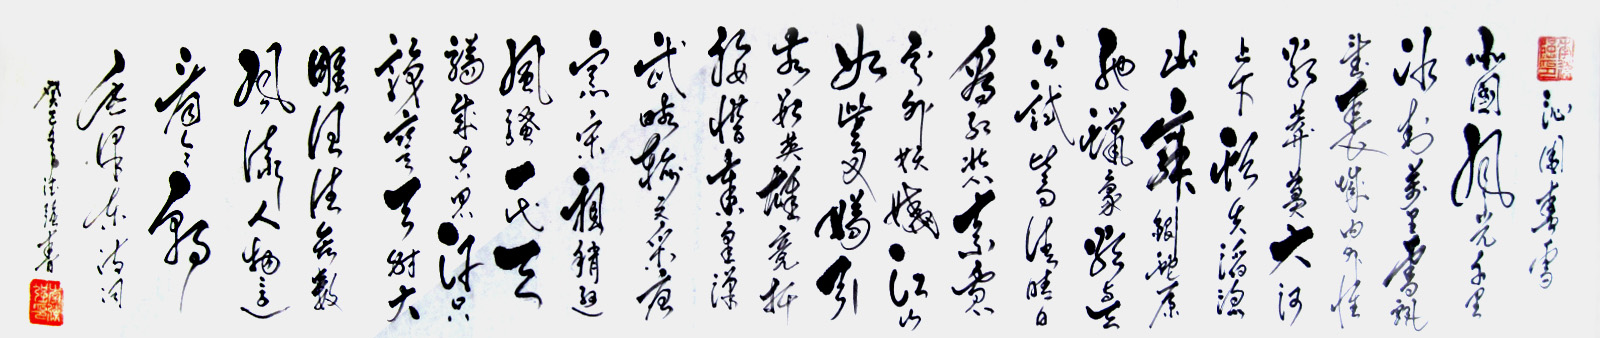 沁園春雪
北國风光千里
冰封万里雪飘
望長城内外惟
馀莽莽大河
上下顿失滔滔
山舞银蛇原
驰蜡象欲與
公试比高須晴日
看红装素裹
分外妖娆江山
如此多嬌引
無数英雄竞折
腰惜秦皇漢
武略输文采唐
宗宋祖稍逊
風骚一代天
骄成吉思汗只
識弯弓射大
雕俱往矣数
风流人物还
看今朝
毛泽东诗词
癸巳年 書